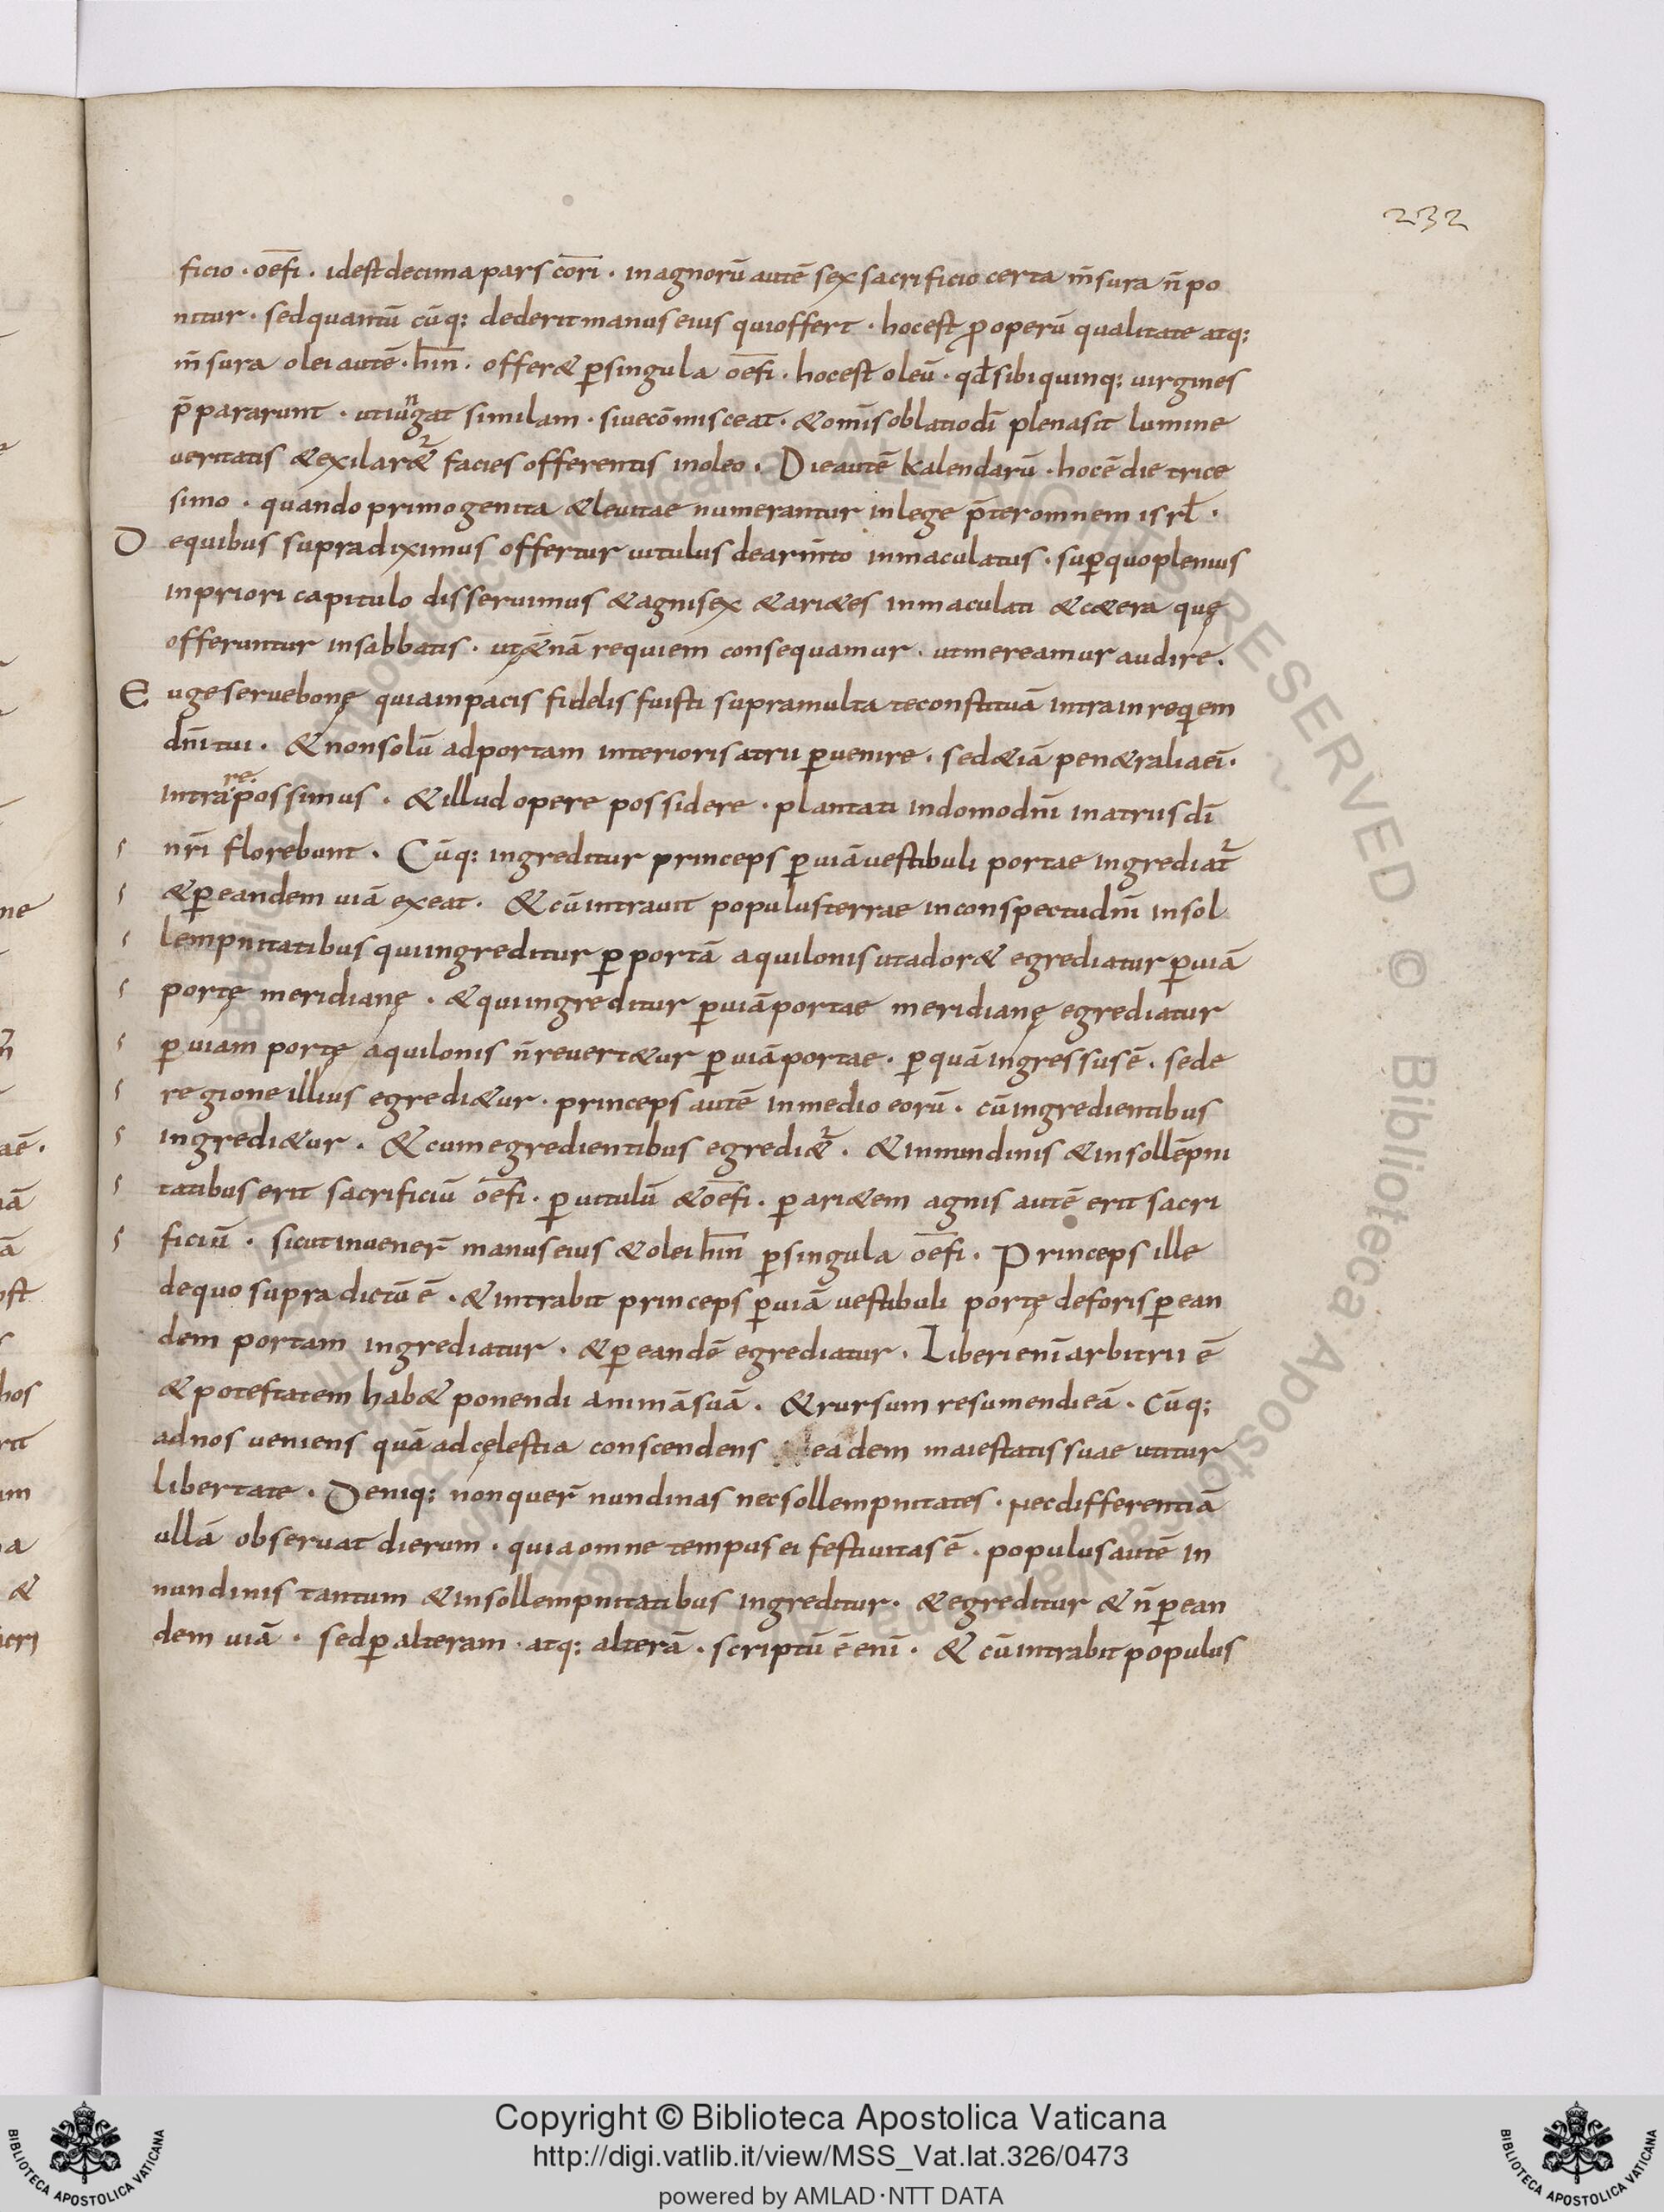 232
ficio · oe̅fi · idest decima pars co̅ri · in agnorū autē sex sacrificio certa m̅sura n̅ po
nitur · sed quantū cūq; dederit manus eius qui offert · hocest ꝓ operū qualitate atq;
m̅sura olei autē · hi̅n · offeret ꝑ singula oe̅fi · hocest oleū · qd̅ sibi quinq; uirgines
p̅pararunt · ut iungat similam · siue cōmisceat · & om̅s oblatio di̅ plena sit lumine
ueritatis & exilaret᷑ facies offerentis in oleo · Die autē kalendarū · hoc ē die trice
simo · quando primogenita & leuitae numerantur in lege p̅ter omnem isrl̅ ·
De quibus supra diximus offertur uitulus de arm̅to inmaculatus · suꝑ quo plenius
in priori capitulo disseruimus & agni sex & ari&es inmaculati & c&era quę
offeruntur in sabbatis · ut ę&nā requiem consequamur · ut mereamur audire ·
Euge serue bonę quia in pacis fidelis fuisti supra multa te constituā intra in reqiem
dn̅i tui · & non solū ad portam interioris atrii ꝑuenire · sed &iā pen&ralia ei̅ ·
intrare possimus · & illud opere possidere · plantati in domo dn̅i in atriis di̅
nr̅i florebunt · Cūq; ingreditur princeps ꝑ uiā uestibuli portae ingrediat᷑
& ꝑ eandem uiā exeat · & cū intrauit populus terrae in conspectu dn̅i in sol
lempnitatibus qui ingreditur ꝑ portā aquilonis ut ador& egrediatur ꝑ uiā
portę meridianę · & qui ingreditur ꝑ uiā portae meridianę egrediatur
ꝑ uiam portę aquilonis n̅ reuert&ur ꝑ uiā portae · ꝑ quā ingressus ē · sed e
regione illius egredi&ur · princeps autē in medio eorū · cū ingredientibus
ingredi&ur · & cum egredientibus egredi&᷑ · & in nundinis & in sollēpni
tatibus erit sacrificiū oe̅fi · ꝑ uitulū & oe̅fi · ꝑ ari&em agnis autē erit sacri
ficiū · sicut inuener̅ manus eius & olei hi̅n ꝑ singula oe̅fi · Princeps ille
de quo supra dictū ē · & intrabit princeps ꝑ uiā uestibuli portę deforis ꝑ ean
dem portam ingrediatur · & ꝑ eandē egrediatur · Liberi eni̅ arbitrii ē
& potestatem hab& ponendi animā suā · & rursum resumendi eā · Cūq;
ad nos ueniens quā ad cęlestia conscendens eadem maiestatis suae utitur
libertate · Deniq; non quer̅ nundinas nec sollempnitates · Nec differentiā
ullā obseruat dierum · quia omne tempus ei festiuitas ē · populus autē in
nundinis tantum & in sollempnitatibus ingreditur · & egreditur & n̅ ꝑ ean
dem uiā · sed ꝑ alteram · atq; alterā · scriptū ē eni̅ · & cū intrabit populus
Copyright © Biblioteca Apostolica Vaticana
http://digi.vatlib.it/view/MSS_Vat.lat.326/0473
powered by AMLAD·NTT DATA